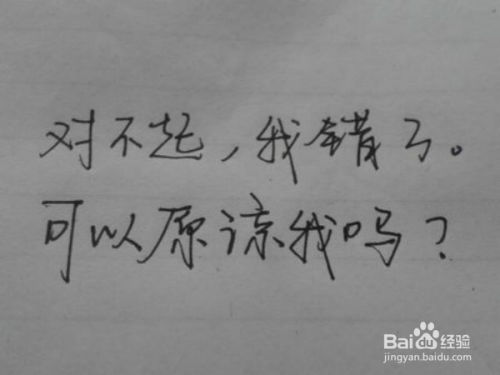 对不起，我错了。
可以原谅我吗？
Baidu经验
jingyan.baidu.com